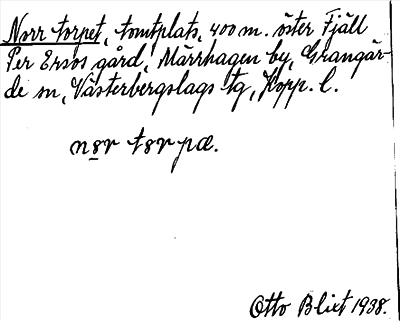 Norr torpet, tomtplats, 400 m. öster Fjäll
Per Ersos gård, Märrhagen by, Grangär-
de sn, Västerbergslags tg, Kopp. l.
nør tør pæ.
Otto Blixt 1938.